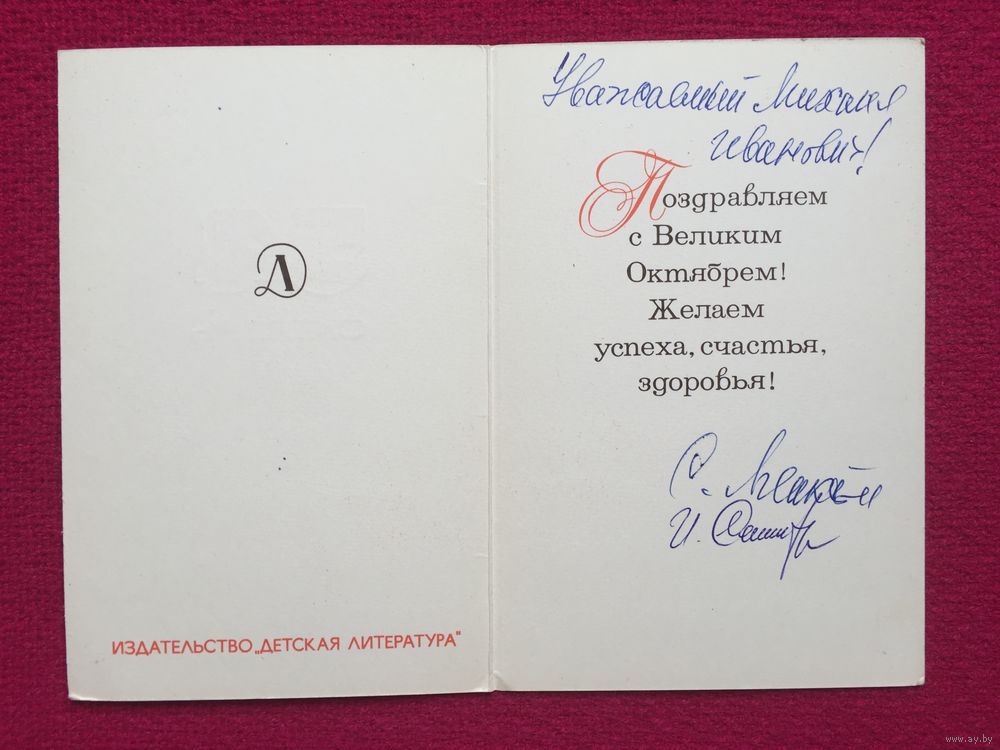 Д
ИЗДАТЕЛЬСТВО „ДЕТСКАЯ ЛИТЕРАТУРА"
Уважаемый Михаил
Иванович!
Поздравляем
с Великим
Октябрем!
Желаем
успеха, счастья,
здоровья!
С.
И.
www.ay.by